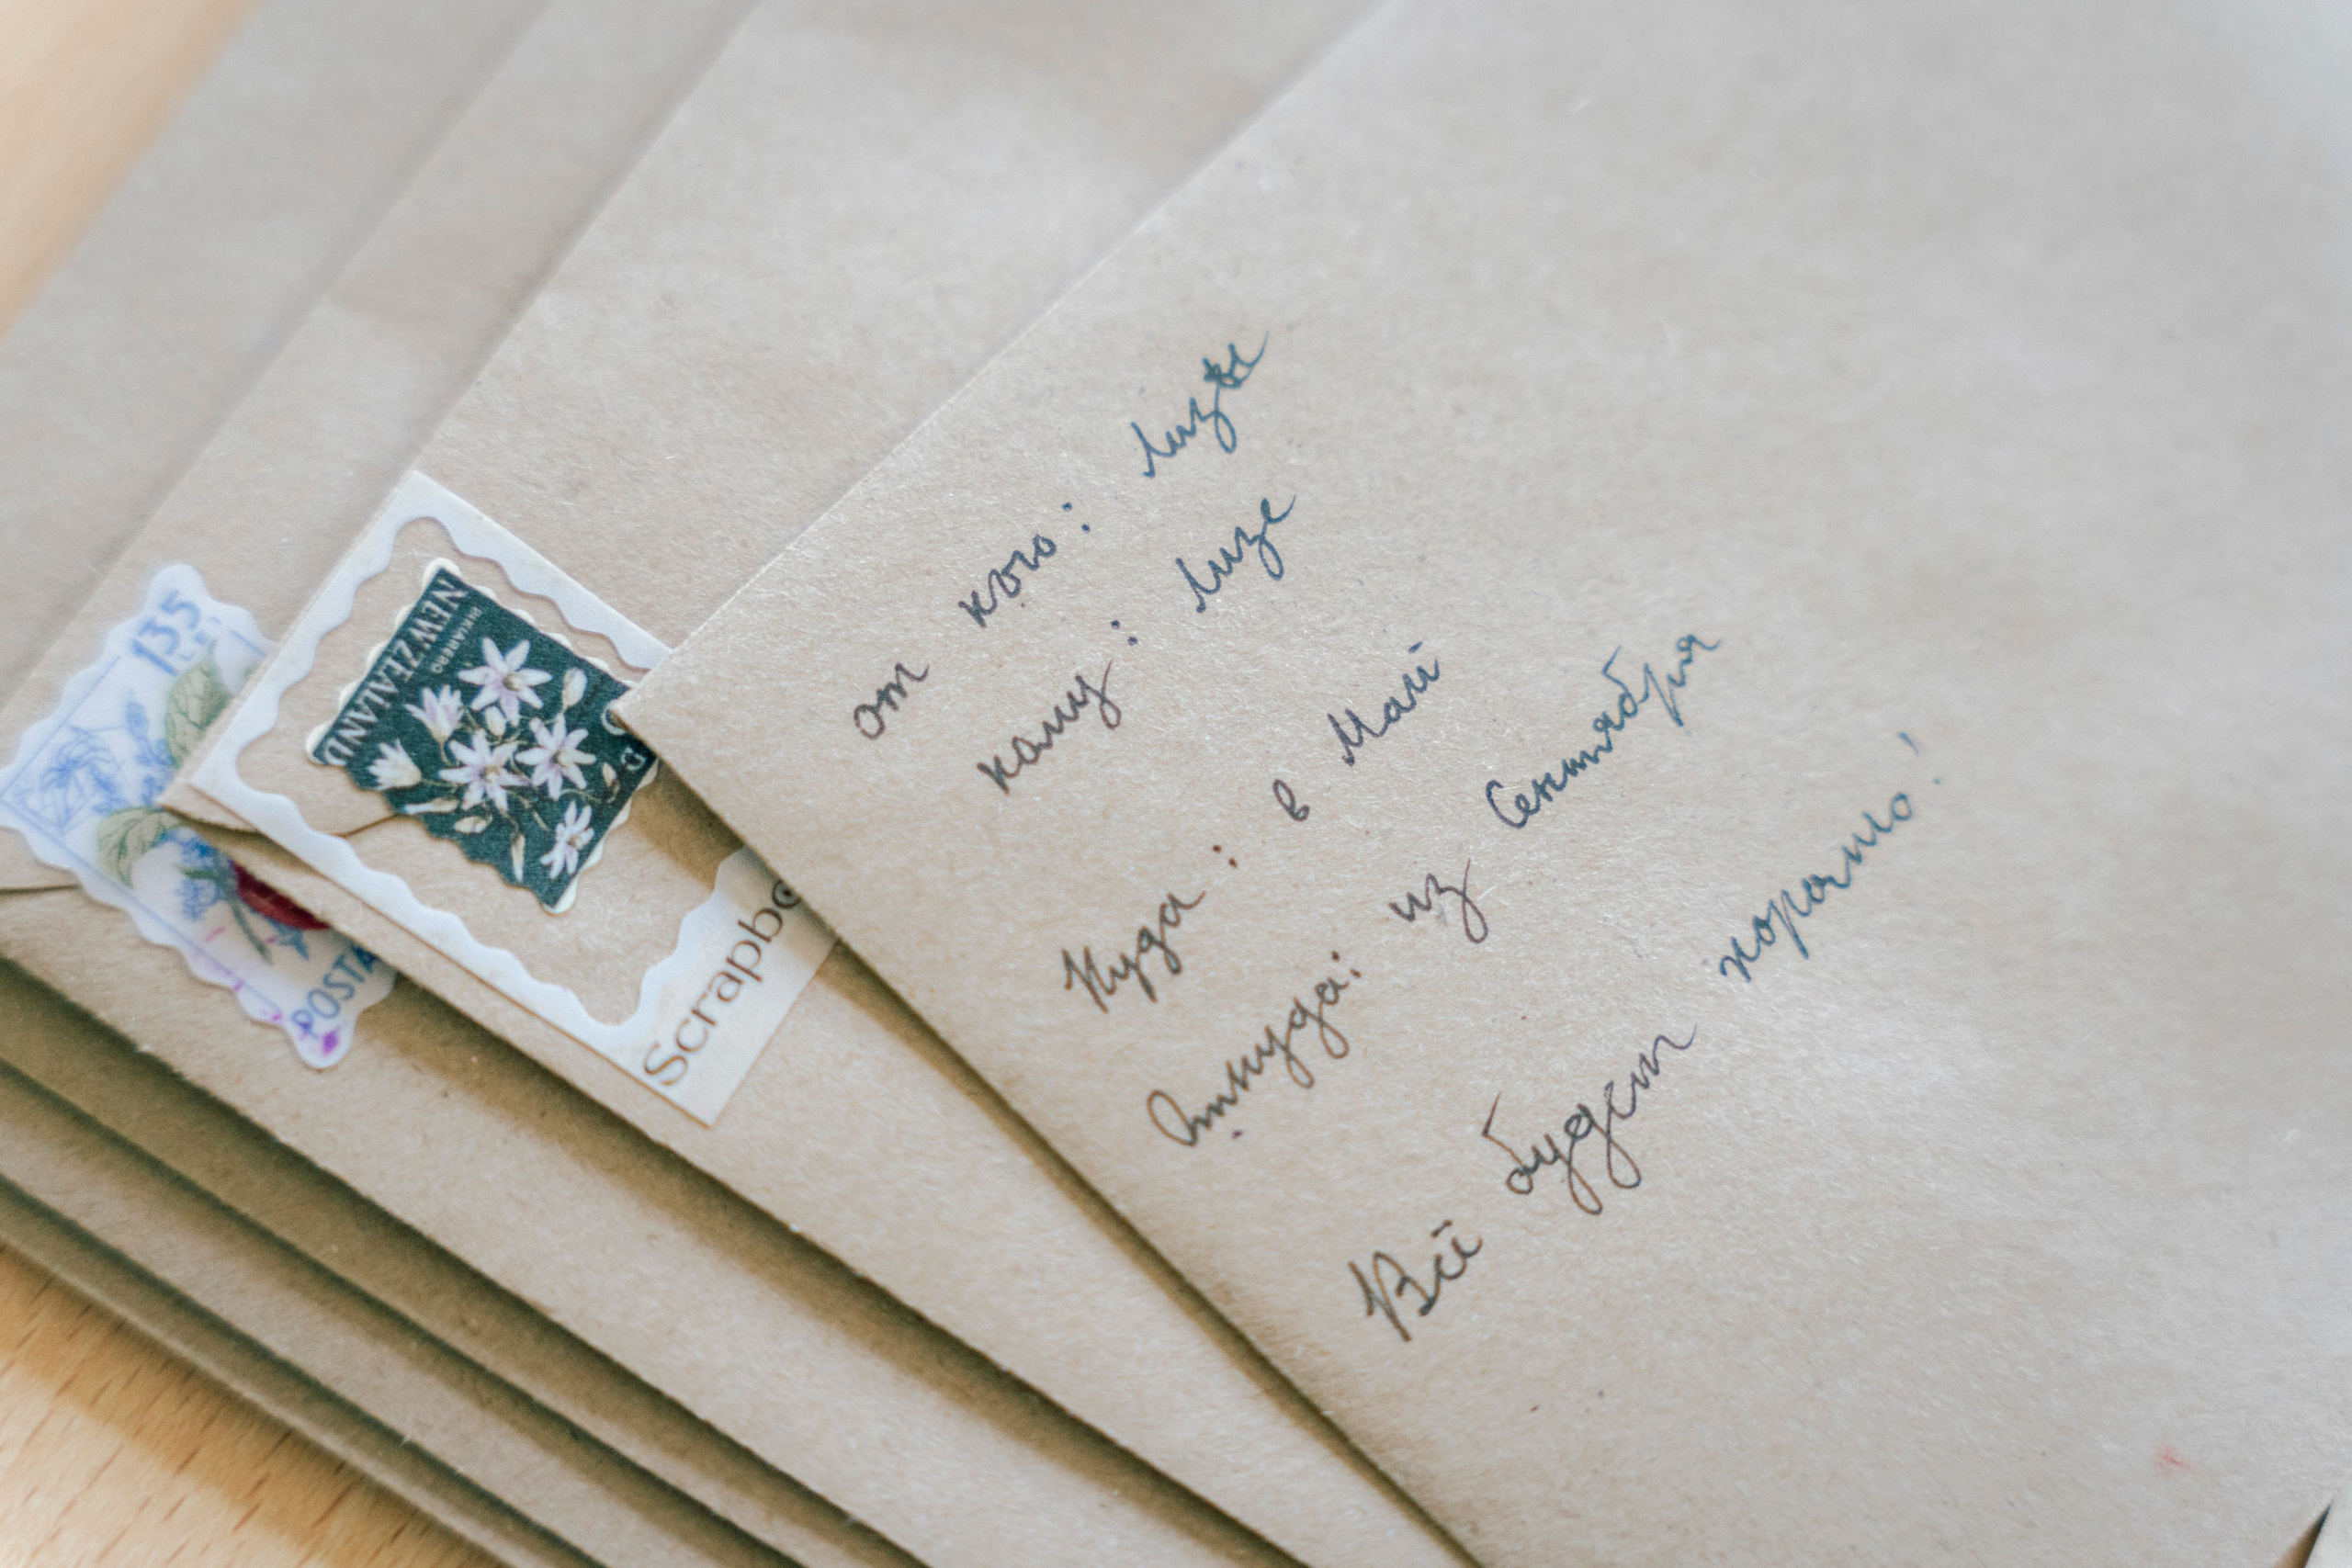 от кого: Лизы
кому: Лизе
Куда: в Май
Откуда: из Сентября
Всё будет хорошо!
NEW ZEALAND
135
POSTA